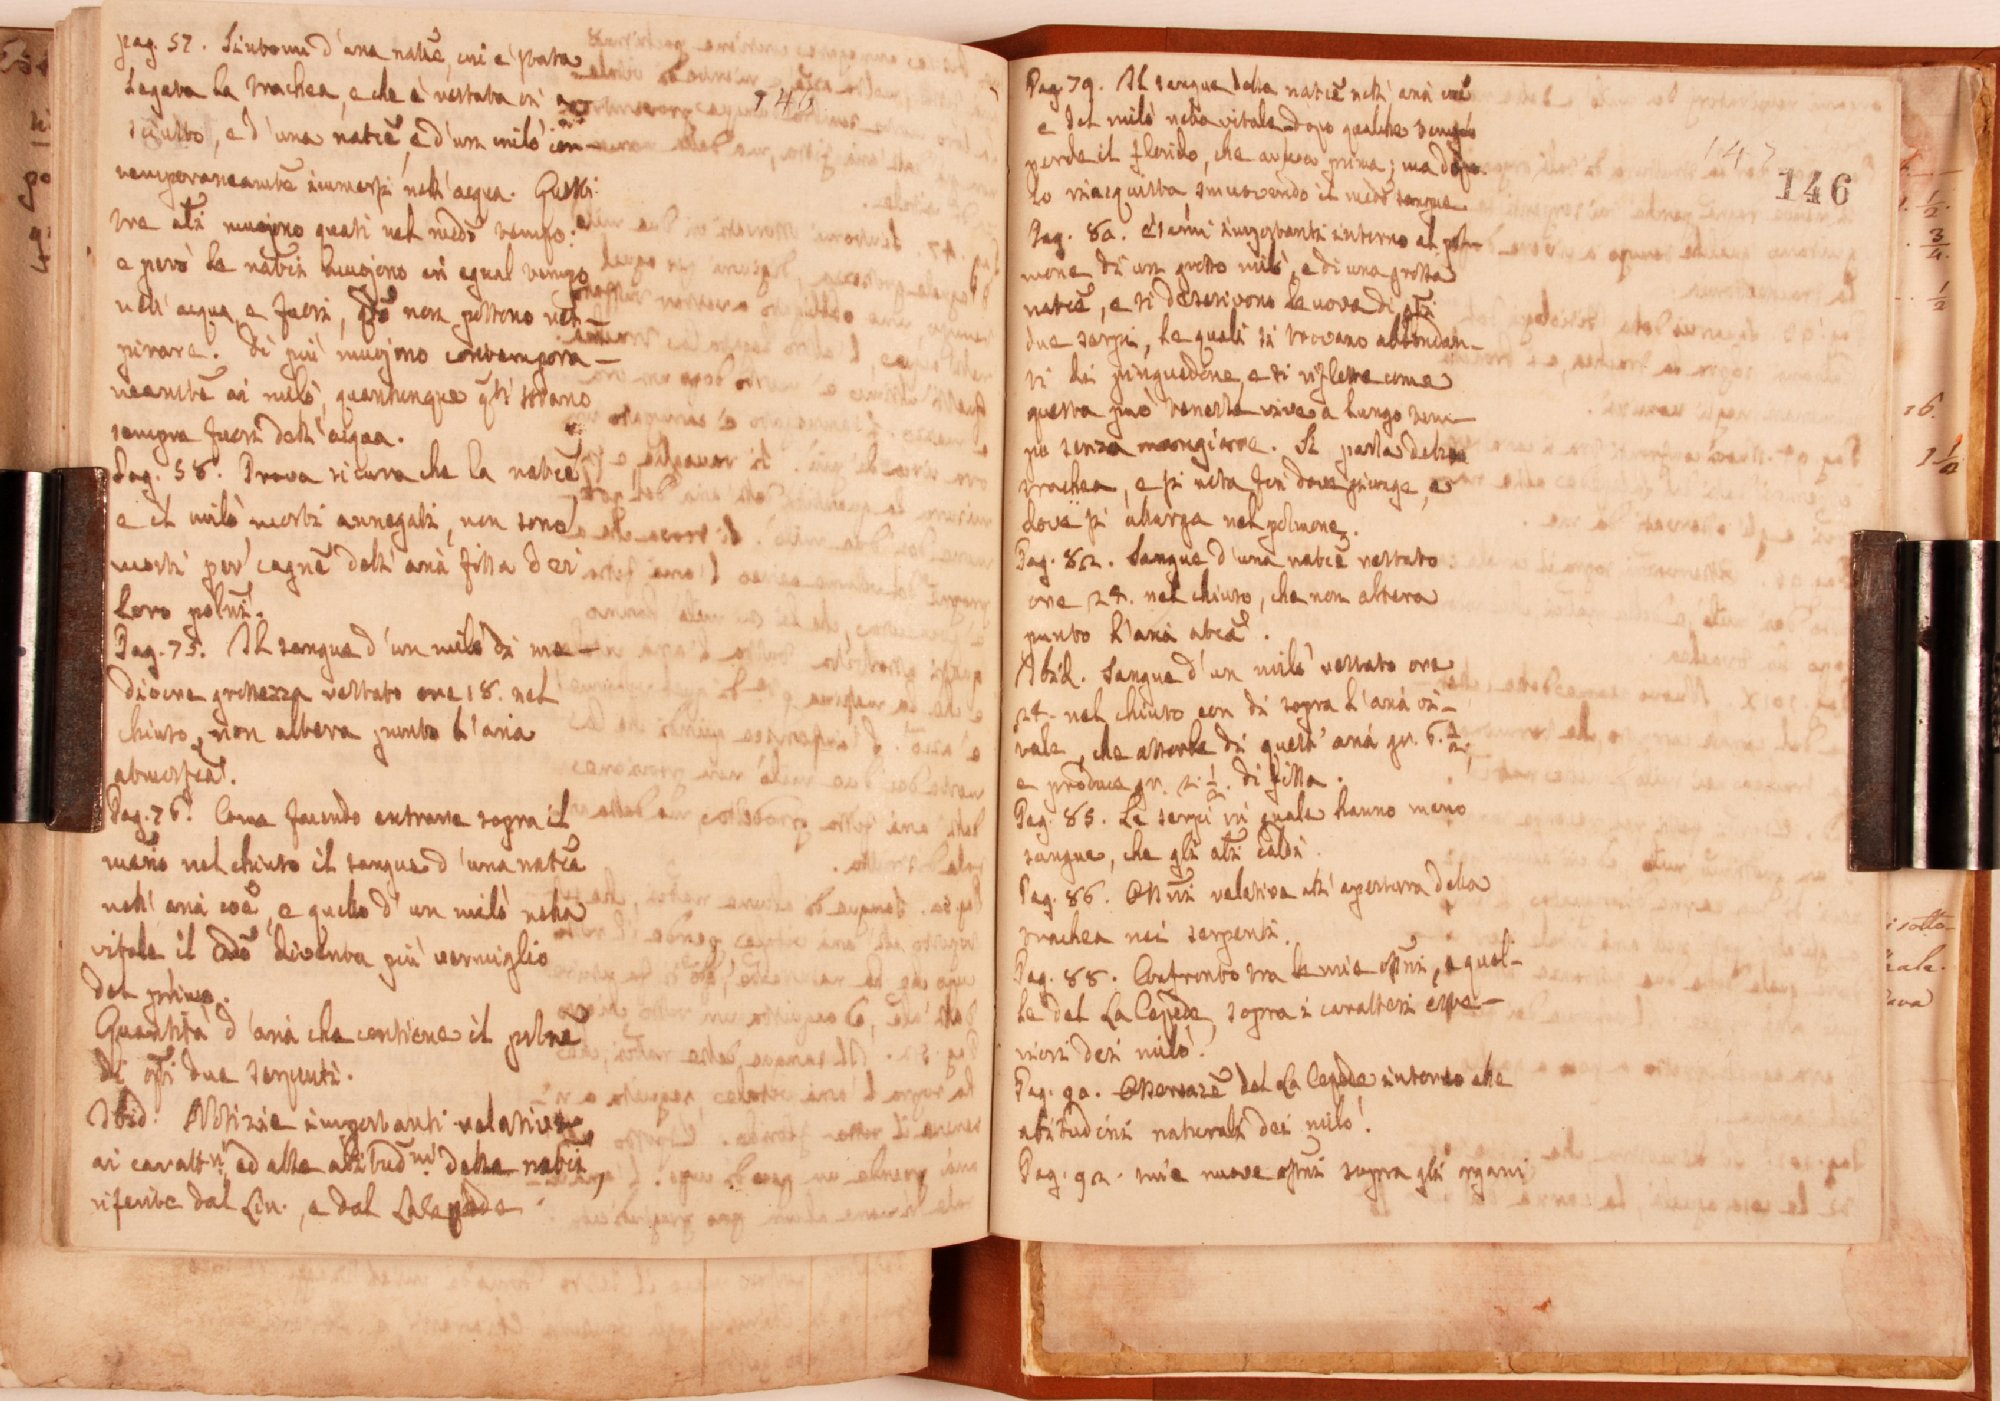 pag. 57. Sintomi d'una natrē, cui è stata
legata la trachea, e che è restata in
sciutto, e d'una natrē, e d'un milò con-
temporaneamtē immersi nell'acqua. Questi
tre atī muojono quasi nel medō tempo:
e però le natrici muojono in egual tempo
nell'acqua, e fuori, qdō non possono res-
pirare. Di più muojono contempora-
neamtē ai milò, quantunque qti stiano
sempre fuori dell'acqua.
Pag. 58. Prova sicura che la natrē,
e il milò morti annegati, non sono
morti per cagnē dell'aria fissa dei
loro polmī.
Pag. 75. Il sangue d'un milò di me-
diocre grossezza restato ore 18. nel
chiuso, non altera punto l'aria
atmosfca.
Pag. 76. Come facendo entrare sopra il
merc̄o nel chiuso il sangue d'una natrē
nell'aria coē, e quello d'un milò nella
vitale il 2dō diventa più vermiglio
del primo.
Quantità d'aria che contiene il polmē
di qsti due serpenti.
Ibid. Notizie importanti relative
ai caratt.ri, ed alle abitud.ni delle natrici,
riferite dal Lin., e dal Lacepede
146
Pag. 79. Il sangue della natrē nell'aria coē
e del milò nella vitale dopo qualche tempo
perde il florido, che aveva prima; ma dopo
lo riacquista, smuovendo il medō sangue
Pag. 80. Esami importanti intorno al pol-
mone di un grosso milò, e di una grossa
natrē, e si descrivono le uova di qsti
due serpi, le quali si trovano abbondan-
ti di pinguedine, e si riflette come
questa può tenerle vive a lungo tem-
po senza mangiare. Si parla della
trachea, e si nota fin dove giunge, e
dove si allarga nel polmone.
Pag. 82. Sangue d'una natrē restato
ore 24. nel chiuso, che non altera
punto l'aria atcā.
Ibid. Sangue d'un milò restato ore
24. nel chiuso con di sopra l'aria vi-
tale, che assorbe di quest'aria gr. 6. 1/2,
e produce gr. 2 1/2. di fissa.
Pag. 85. Le serpi in quale hanno meno
sangue, che gli atī caldi.
Pag. 86. Ossnī relative all'apertura della
trachea nei serpenti.
Pag. 88. Confronto tra le mie ossnī, e quel-
le del La Cepede, sopra i caratteri este-
riori dei milò.
Pag. 90. Osservazē del La Cepede intorno alle
abitudini naturali dei milò.
Pag. 92. mie nuove ossnī sopra gli organi
147
146